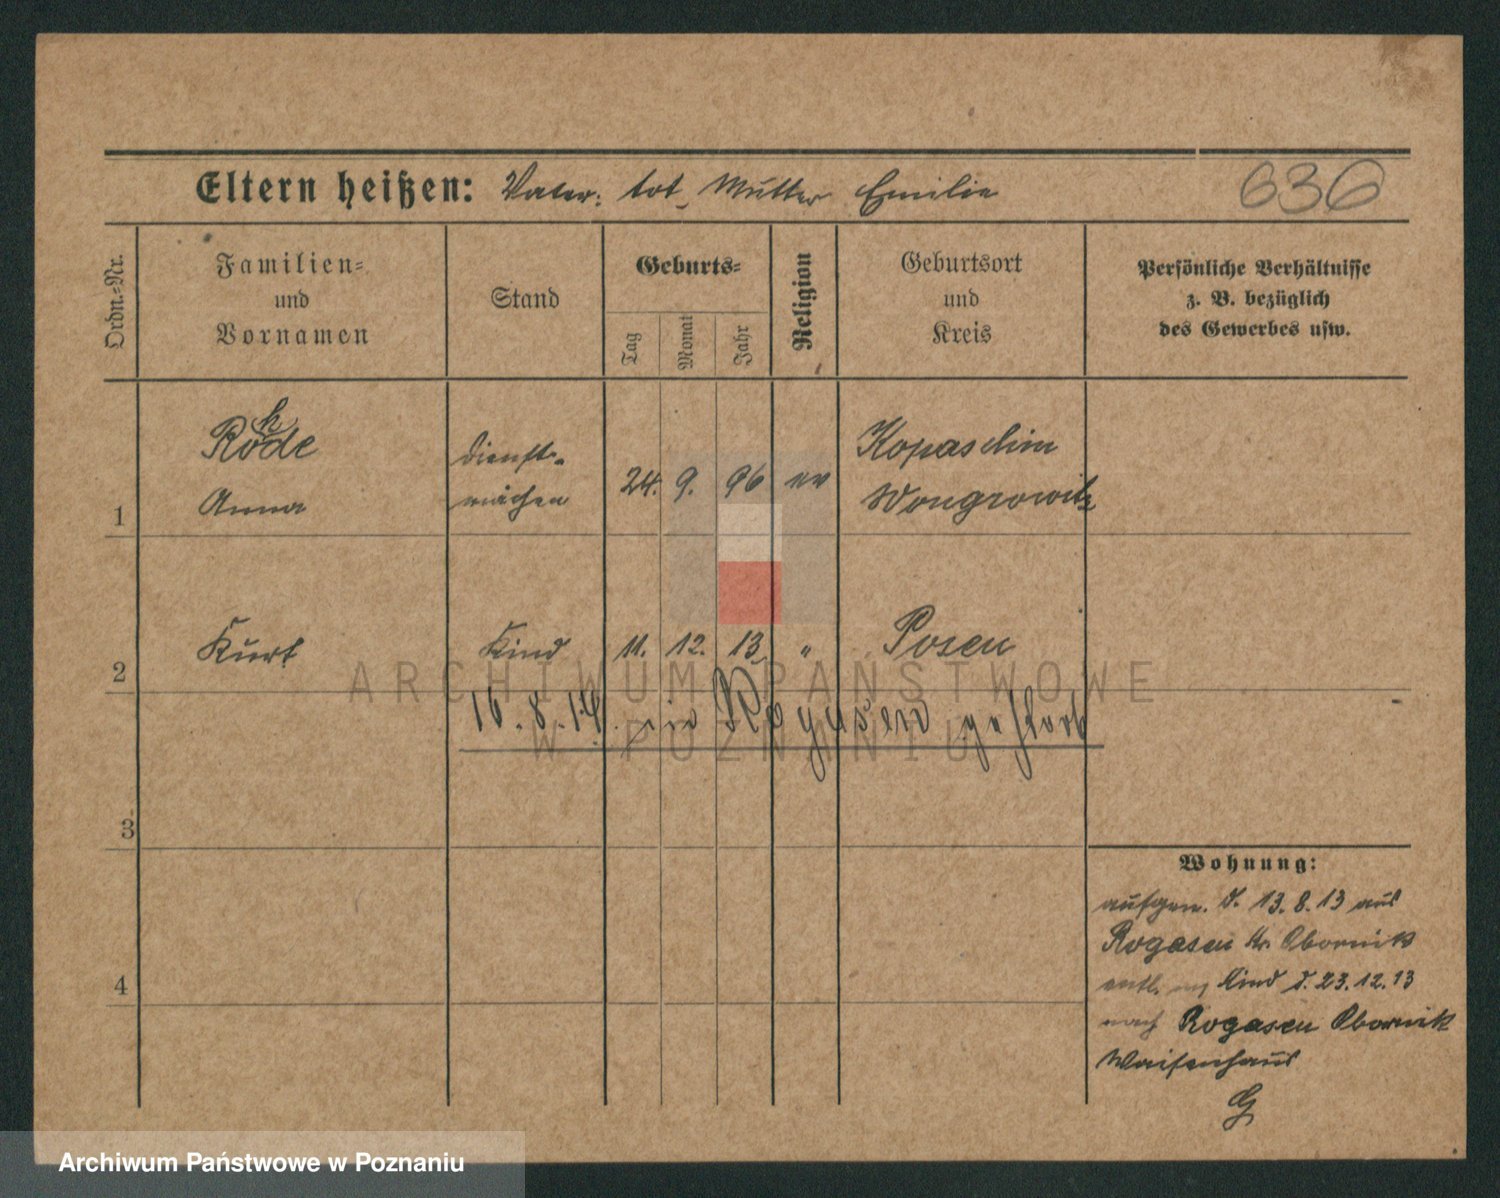 Eltern heißen: Vater: tot, Mutter Emilie 636
Ordn.=Nr.
Familien=
und
Vornamen
Stand
Geburts=
Tag
Monat
Jahr
Religion
Geburtsort
und
Kreis
Persönliche Verhältnisse
z. B. bezüglich
des Gewerbes usw.
1
Rohde
Anna
Dienst-
mädchen
24. 9. 96 ev
Kopaschin
Wongrowitz
2
Kurt Kind 11. 12. 13 " Posen
16.8.14. in Rogasen gestorb
3
4
Wohnung:
aufgen. d. 13.8.13 aus
Rogasen Kr. Obornik
entl. Kind d. 23.12.13
nach Rogasen Obornik
Waisenhaus
G
ARCHIWUM PAŃSTWOWE
W POZNANIU
Archiwum Państwowe w Poznaniu